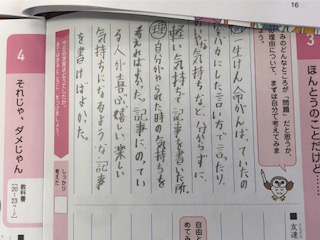 16
3
ほんとうのことだけど……
みのどんなところが「問題」だと思うか、
理由について、まずは自分で考えてみま
友達
自由と
めて
問 一生けん命がんばっていたの
をバカにした言い方で言ったり、
気持ちなど、分からずに、
軽い気持ちで記事を書いた所。
理 自分がやられた時の気持ちを
考えればよかった。記事にのってい
る人が喜ぶ、嬉しい、楽しい
気持ちになるような記事
を書けばよかった。
しっかり
考えた
4
それじゃ、ダメじゃん
教科書